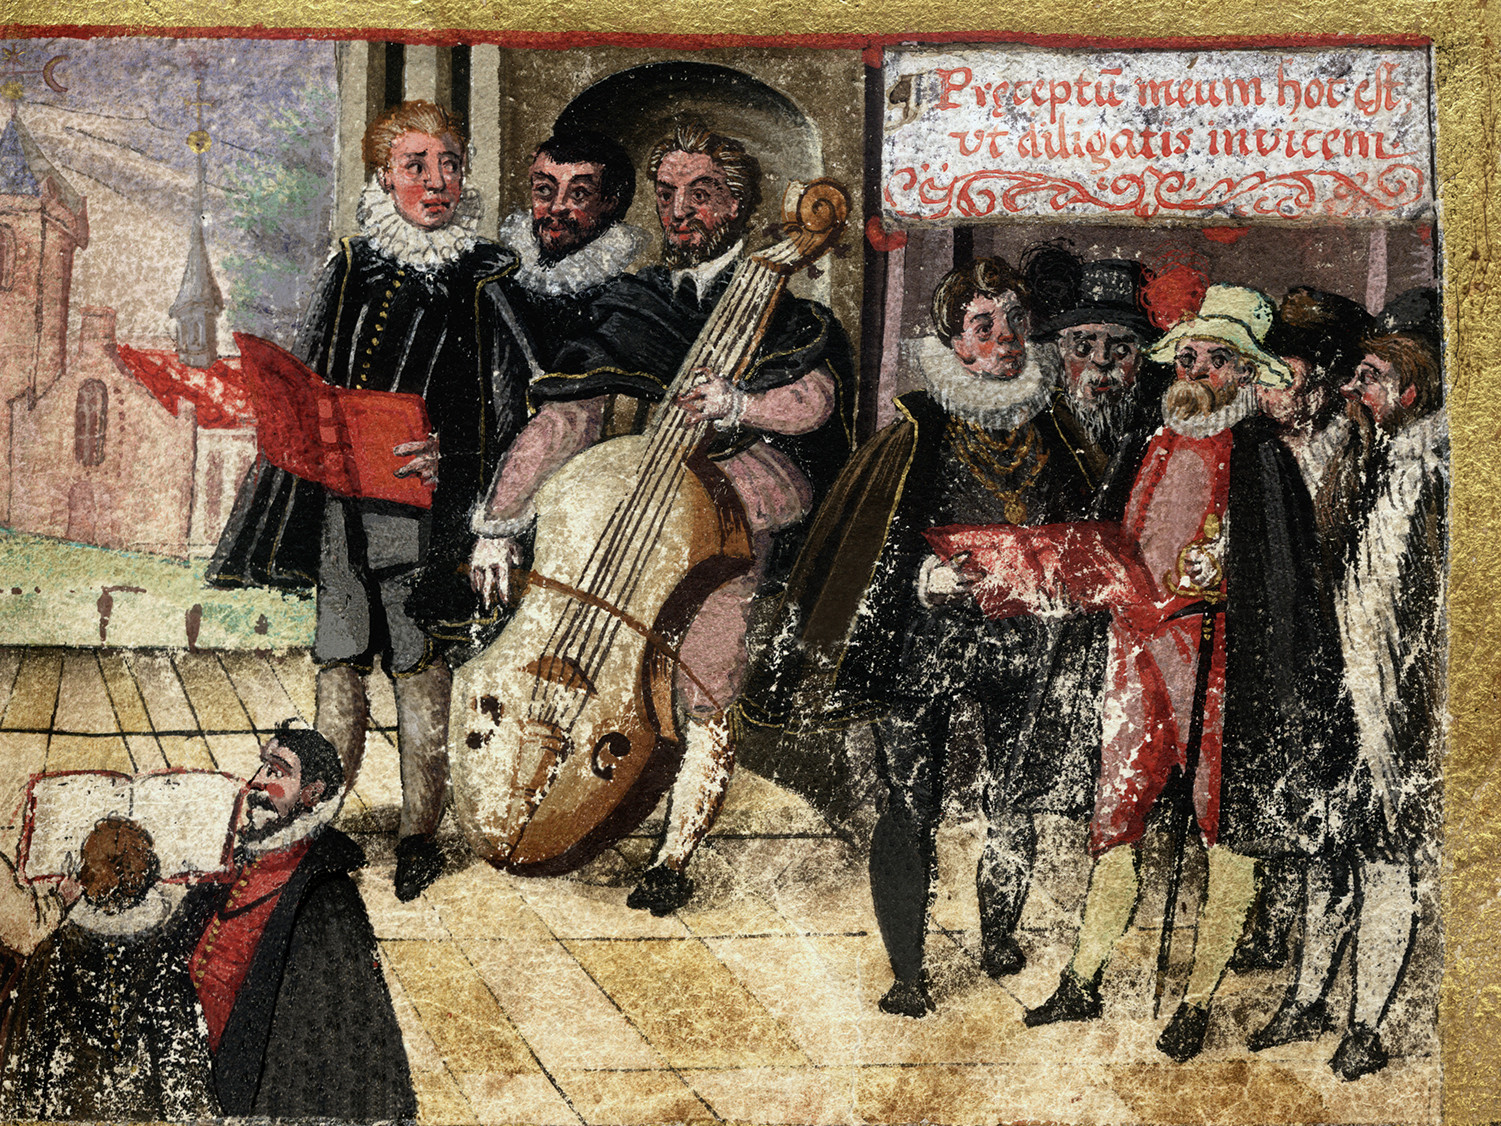 Pręceptū meum hoc est,
vt diligatis invicem.